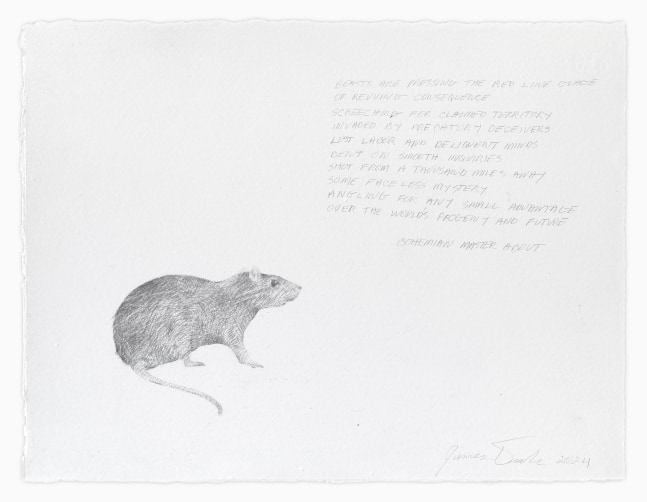 BEASTS ARE PRESSING THE RED LINE CLOSE
OF BEHIND CONSEQUENCE
SCREECHING FOR CLAIMED TERRITORY
INVADED BY PREDATORY DECEIVERS
LOST LABOR AND DELIQUENT MINDS
ON SMOOTH INQUIRIES
SHOT FROM A THOUSAND MILES AWAY
SOME FACELESS MYSTERY
ANGLING FOR ANY SMALL ADVANTAGE
OVER THE WORLD'S PROGENY AND FUTURE
BOHEMIAN MASTER ABOUT
James 2024